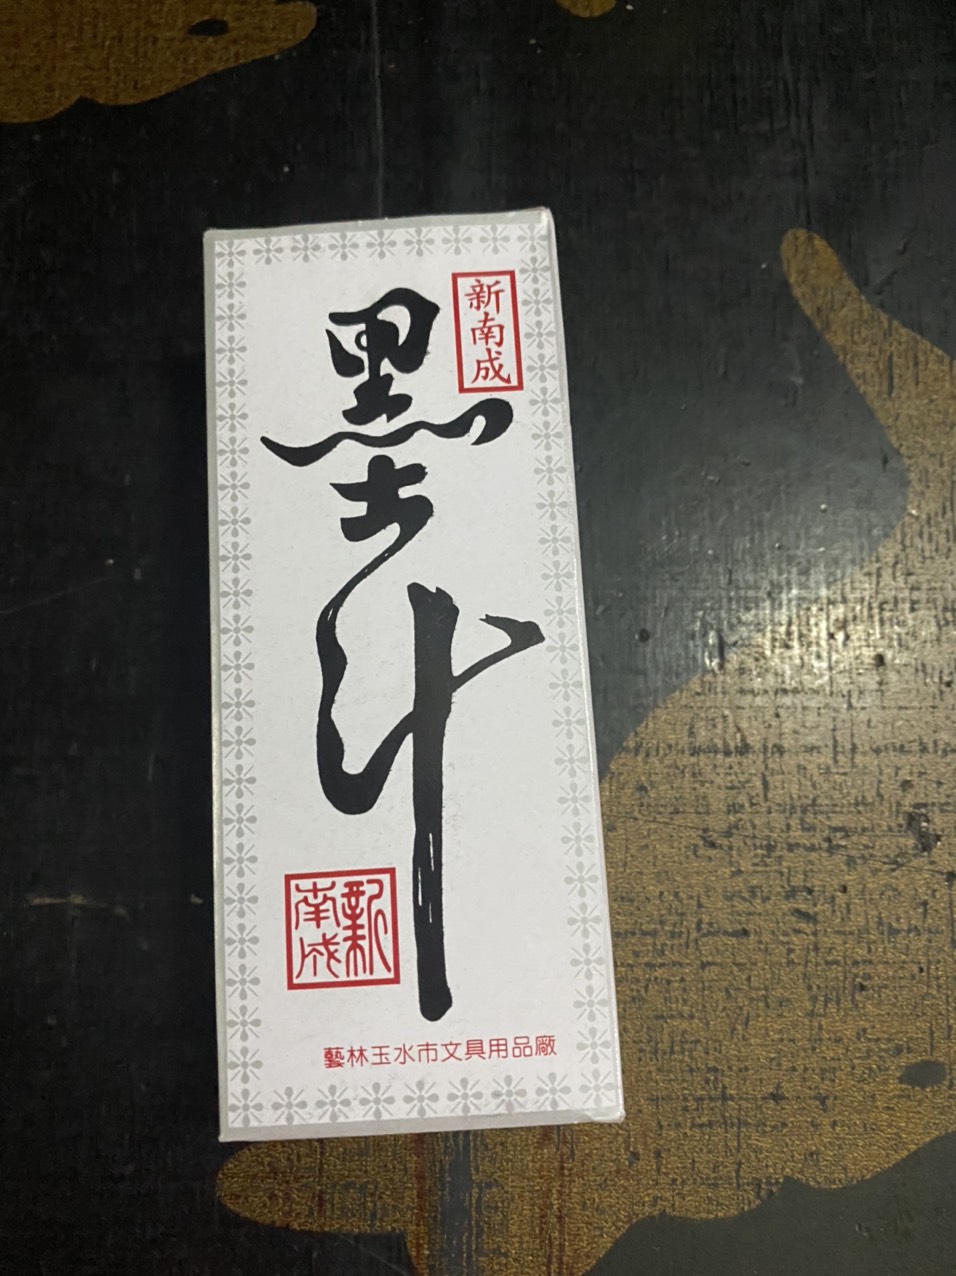 新南成
墨斗
新南成
藝林玉水市文具用品廠